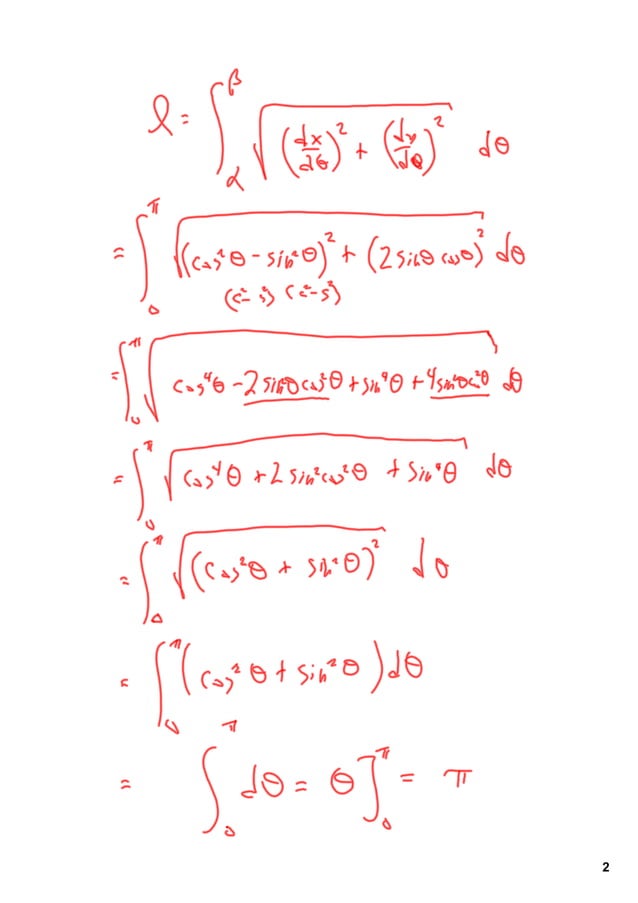 l = ∫_α^β √((dx/dθ)² + (dy/dθ)²) dθ
= ∫_0^π √((cos²θ - sin²θ)² + (2 sinθ cosθ)²) dθ
(c² - s²) (c² - s²)
= ∫_0^π √(cos⁴θ - 2 sin²θcos²θ + sin⁴θ + 4 sin²θc²θ) dθ
= ∫_0^π √(cos⁴θ + 2 sin²cos²θ + sin⁴θ) dθ
= ∫_0^π √((cos²θ + sin²θ)²) dθ
= ∫_0^π (cos²θ + sin²θ) dθ
= ∫_0^π dθ = θ]_0^π = π
2